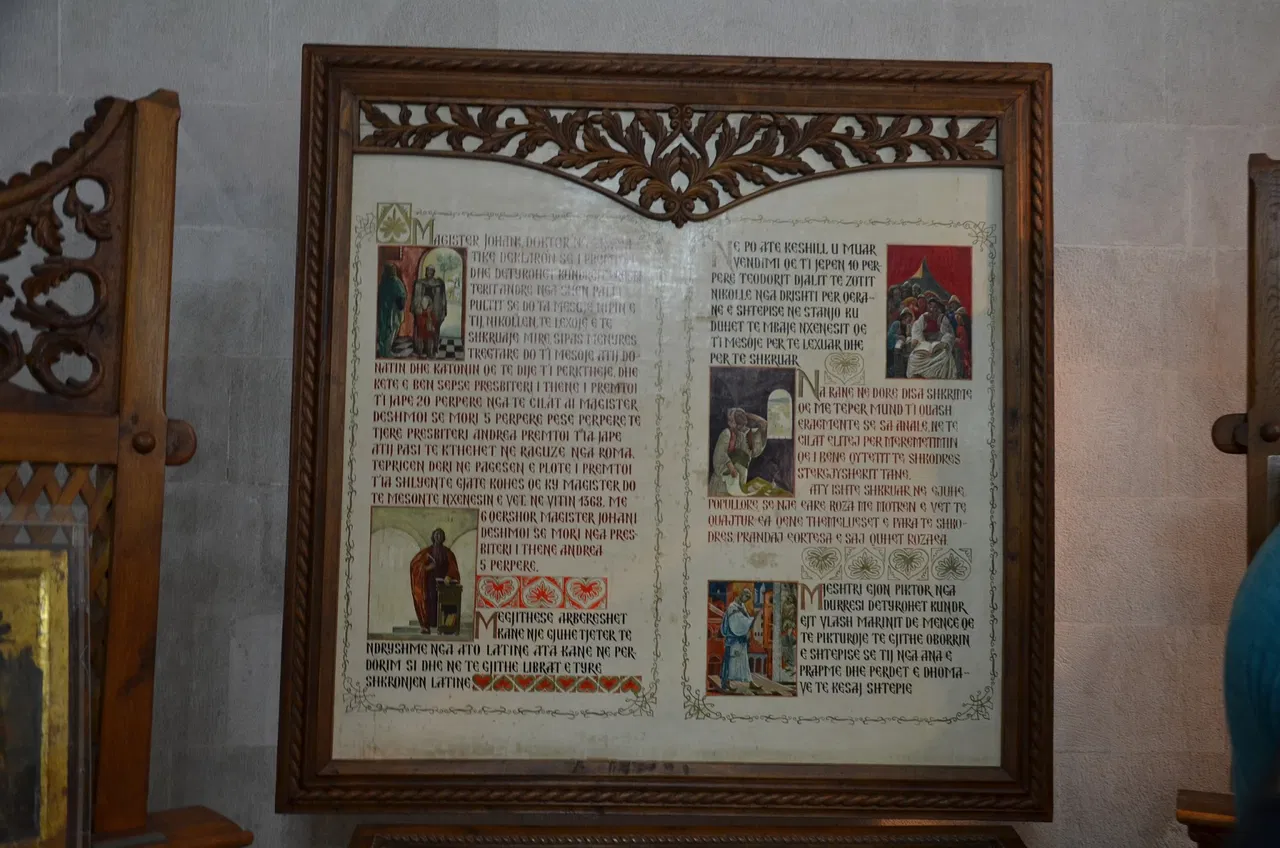 MAGISTER JOHANI, DOKTOR
TIKE DEKLARON SE I
DHE DETYROHET KUNDREJT
NGA SHEN PALI I
PULTIT SE DO TA MESOJE NIPIN E
TIJ, NIKOLLEN, TE LEXOJE E TE
SHKRUAJE MIRE SIPAS MENYRES
TREGTARE DO T'I MESOJE ATIJ DO-
NATIN DHE KATONIN QE TE DIJE T'I PERKTHEJE, DHE
KETE E BEN SEPSE PRESBITERI I THENE I PREMTOI
T'I JAPE 20 PERPERE NGA TE CILAT AI MAGISTER
DESHMOI SE MORI 5 PERPERE PESE PERPERE TE
TJERE PRESBITERI ANDREA PREMTOI T'IA JAPE
ATIJ PASI TE KTHEHET NE RAGUZE NGA ROMA,
TEPRICEN DERI NE PAGESEN E PLOTE I PREMTOI
T'IA SHLYENTE GJATE KOHES QE KY MAGISTER DO
TE MESONTE NXENESIN E VET. NE VITIN 1368, ME
6 QERSHOR MAGISTER JOHANI
DESHMOI SE MORI NGA PRES-
BITERI I THENE ANDREA
5 PERPERE.
MEGJITHESE ARBERESHET
KANE NJE GJUHE TJETER TE
NDRYSHME NGA ATO LATINE ATA KANE NE PER-
DORIM SI DHE NE TE GJITHE LIBRAT E TYRE
SHKRONJEN LATINE
NE PO ATE KESHILL U MUAR
VENDAMI QE T'I JEPEN 10 PER-
PERE TEODORIT DJALIT TE ZOTIT
NIKOLLE NGA DRISHTI PER QERA-
NE E SHTEPISE NE STANJO KU
DUHET TE MBAJE NXENESIT QE
T'I MESOJE PER TE LEXUAR DHE
PER TE SHKRUAR
NA RANE NE DORE DISA SHKRIME
QE ME TEPER MUND T'I QUASH
FRAGMENTE SE SA ANALE, NE TE
CILAT FLITEJ PER MEREMETIMIN
QE I BENE QYTETIT TE SHKODRES
STERGJYSHERIT TANE.
ATY ISHTE SHKRUAR NE GJUHE
POPULLORE, SE NJE FARE ROZA ME MOTREN E VET TE
QUAJTUR FA QENE THEMELUESET E PARA TE SHKO-
DRES, PRANDAJ FORTESA E SAJ QUHET ROZAFA
MJESHTRI GJON PIKTOR NGA
DURRESI DETYROHET KUNDR
EJT VLASH MARINIT DE MENCE QE
TE PIKTUROJE TE GJITHE OBORRIN
E SHTEPISE SE TIJ NGA ANA E
PRAPME DHE PERDET E DHOMA-
VE TE KESAJ SHTEPIE